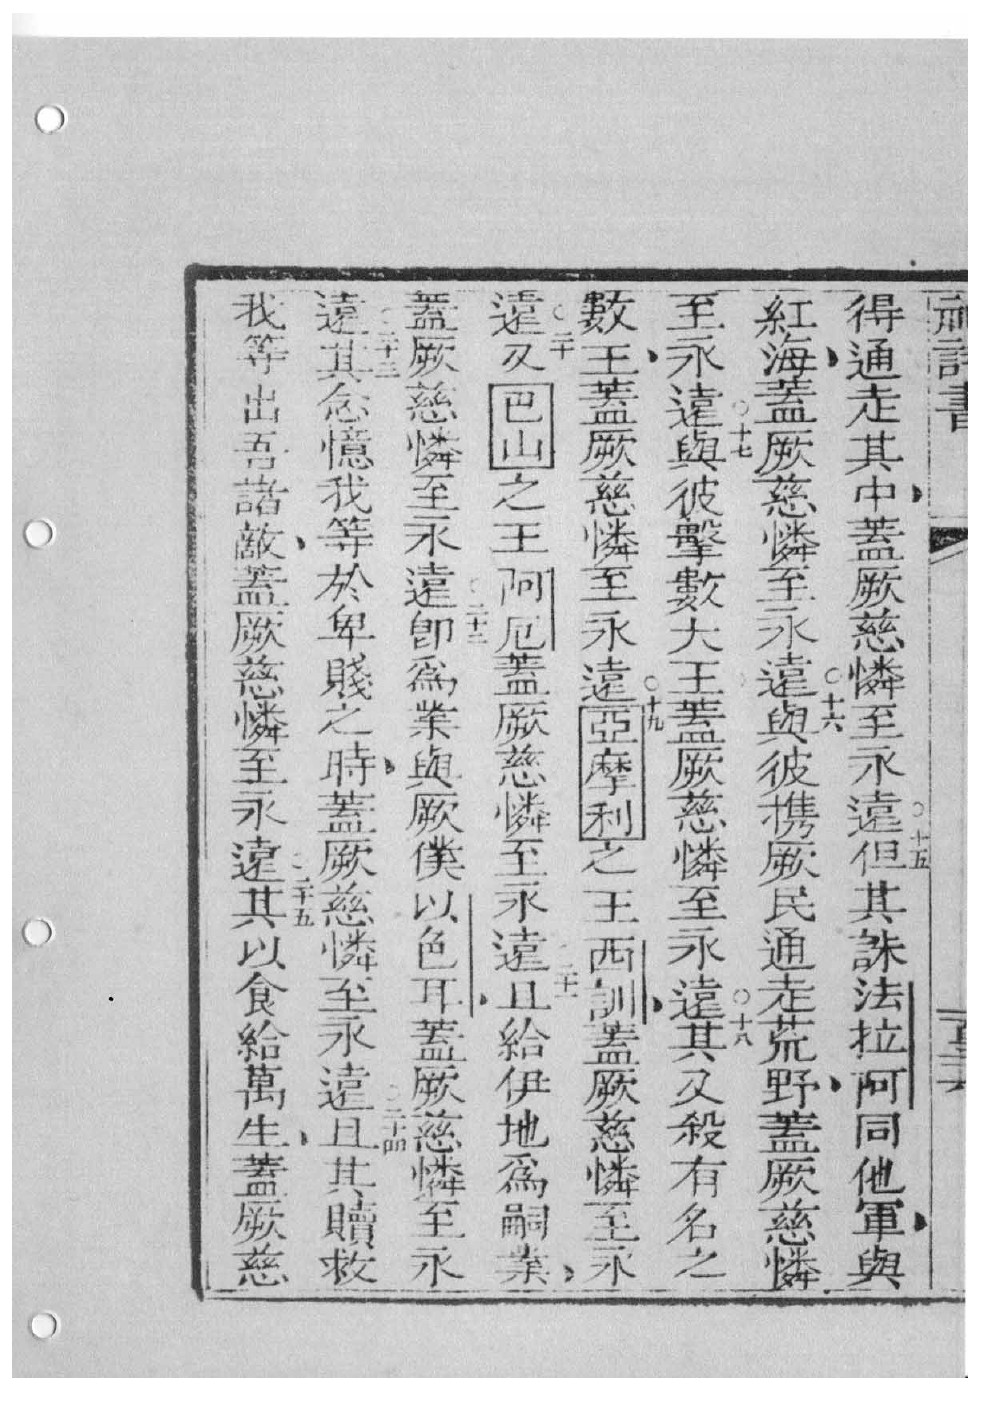 神詩書
得通走其中蓋厥慈憐至永遠○十五但其誅法拉阿同他軍與
紅海蓋厥慈憐至永遠○十六與彼携厥民通走荒野蓋厥慈憐
至永遠○十七與彼擊數大王蓋厥慈憐至永遠○十八其又殺有名之
數王蓋厥慈憐至永遠○十九亞摩利之王西訓蓋厥慈憐至永
遠○二十又巴山之王阿厄蓋厥慈憐至永遠○二十一且給伊地為嗣業
蓋厥慈憐至永遠○二十二即為業與厥僕以色耳蓋厥慈憐至永
遠○二十三其念憶我等於卑賤之時蓋厥慈憐至永遠○二十四且其贖救
我等出吾諸敵蓋厥慈憐至永遠○二十五其以食給萬生蓋厥慈